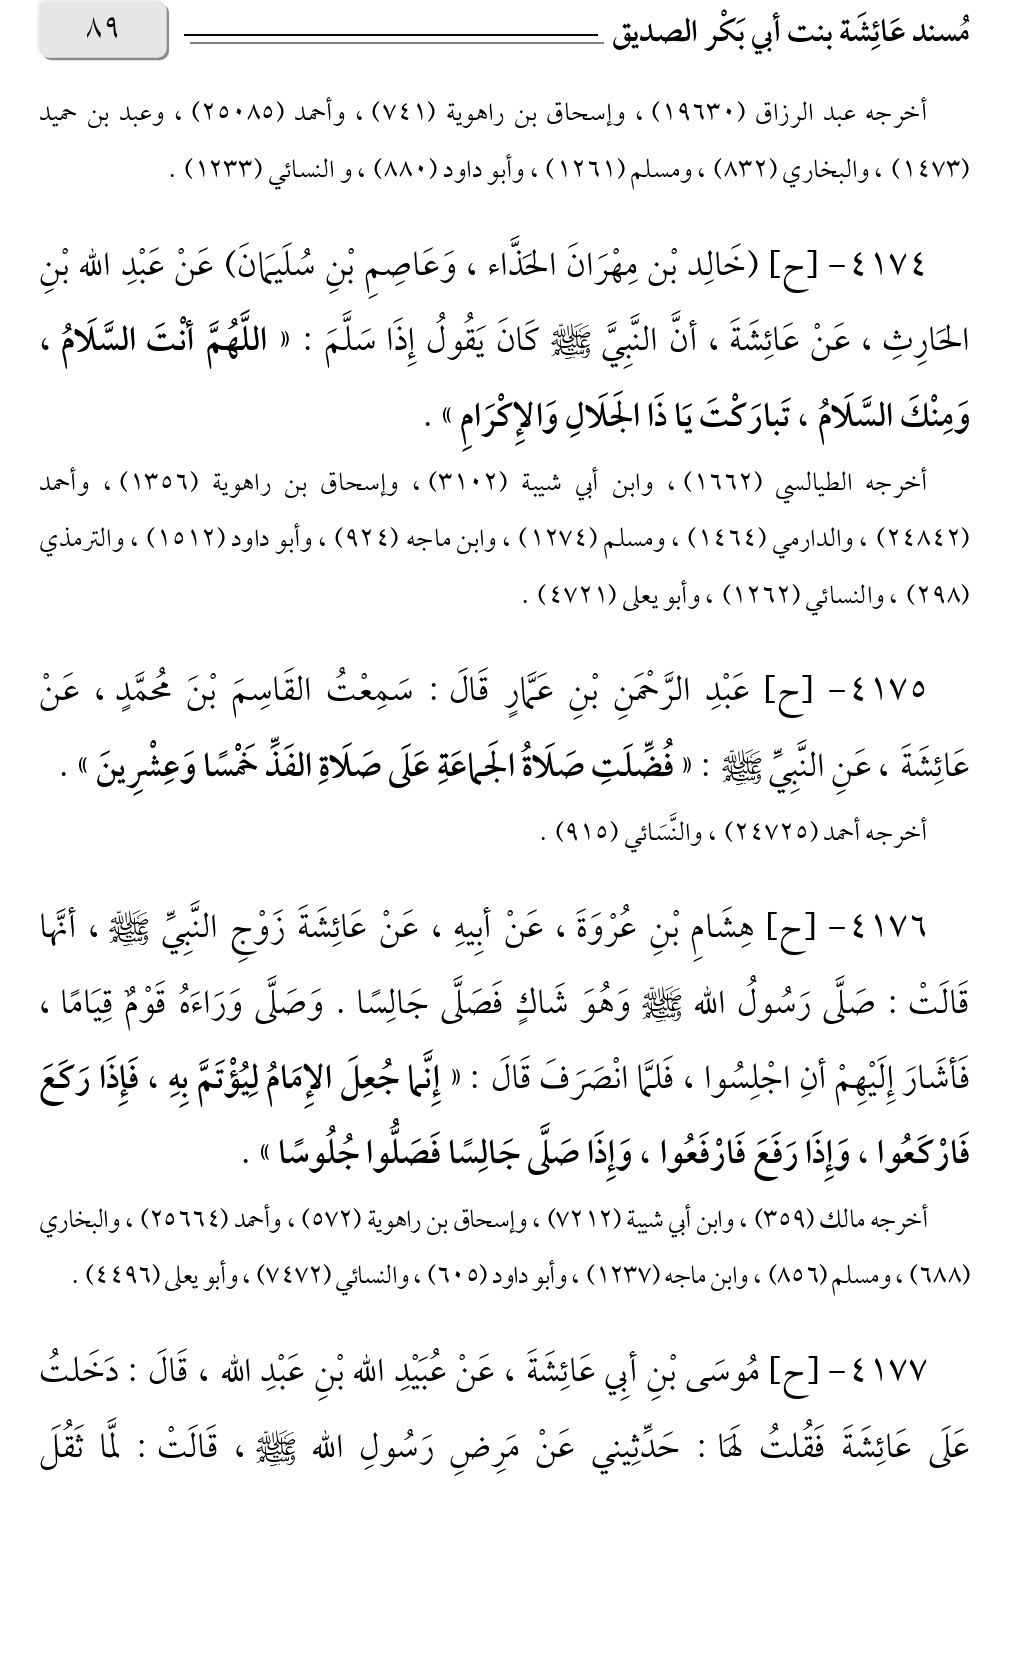 مُسند عَائِشَة بنت أبي بَكْر الصديق ٨٩
أخرجه عبد الرزاق (١٩٦٣٠) ، وإسحاق بن راهوية (٧٤١) ، وأحمد (٢٥٠٨٥) ، وعبد بن حميد
(١٤٧٣) ، والبخاري (٨٣٢) ، ومسلم (١٢٦١) ، وأبو داود (٨٨٠) ، و النسائي (١٢٣٣) .
٤١٧٤- [ح] (خَالِد بْن مِهْرَانَ الحَذَّاء ، وَعَاصِمِ بْنِ سُلَيمَانَ) عَنْ عَبْدِ الله بْنِ
الحَارِثِ ، عَنْ عَائِشَةَ ، أنَّ النَّبِيَّ ﷺ كَانَ يَقُولُ إِذَا سَلَّمَ : « اللَّهُمَّ أنْتَ السَّلَامُ ،
وَمِنْكَ السَّلَامُ ، تَبارَكْتَ يَا ذَا الجَلَالِ وَالإِكْرَامِ » .
أخرجه الطيالسي (١٦٦٢) ، وابن أبي شيبة (٣١٠٢) ، وإسحاق بن راهوية (١٣٥٦) ، وأحمد
(٢٤٨٤٢) ، والدارمي (١٤٦٤) ، ومسلم (١٢٧٤) ، وابن ماجه (٩٢٤) ، وأبو داود (١٥١٢) ، والترمذي
(٢٩٨) ، والنسائي (١٢٦٢) ، وأبو يعلى (٤٧٢١) .
٤١٧٥- [ح] عَبْدِ الرَّحْمَنِ بْنِ عَمَّارٍ قَالَ : سَمِعْتُ القَاسِمَ بْنَ مُحمَّدٍ ، عَنْ
عَائِشَةَ ، عَنِ النَّبِيِّ ﷺ : « فُضِّلَتِ صَلَاةُ الجَماعَةِ عَلَى صَلَاةِ الفَذِّ خَمْسًا وَعِشْرِينَ » .
أخرجه أحمد (٢٤٧٢٥) ، والنَّسَائي (٩١٥) .
٤١٧٦- [ح] هِشَامِ بْنِ عُرْوَةَ ، عَنْ أبِيهِ ، عَنْ عَائِشَةَ زَوْجِ النَّبِيِّ ﷺ ، أنَّها
قَالَتْ : صَلَّى رَسُولُ الله ﷺ وَهُوَ شَاكٍ فَصَلَّى جَالِسًا . وَصَلَّى وَرَاءَهُ قَوْمٌ قِيَامًا ،
فَأشَارَ إِلَيْهِمْ أنِ اجْلِسُوا ، فَلمَّا انْصَرَفَ قَالَ : « إِنَّما جُعِلَ الإِمَامُ لِيُؤْتَمَّ بِهِ ، فَإِذَا رَكَعَ
فَارْكَعُوا ، وَإِذَا رَفَعَ فَارْفَعُوا ، وَإِذَا صَلَّى جَالِسًا فَصَلُّوا جُلُوسًا » .
أخرجه مالك (٣٥٩) ، وابن أبي شيبة (٧٢١٢) ، وإسحاق بن راهوية (٥٧٢) ، وأحمد (٢٥٦٦٤) ، والبخاري
(٦٨٨) ، ومسلم (٨٥٦) ، وابن ماجه (١٢٣٧) ، وأبو داود (٦٠٥) ، والنسائي (٧٤٧٢) ، وأبو يعلى (٤٤٩٦) .
٤١٧٧- [ح] مُوسَى بْنِ أبِي عَائِشَةَ ، عَنْ عُبَيْدِ الله بْنِ عَبْدِ الله ، قَالَ : دَخَلتُ
عَلَى عَائِشَةَ فَقُلتُ لَهَا : حَدِّثِيني عَنْ مَرِضِ رَسُولِ الله ﷺ ، قَالَتْ : لمَّا ثَقُلَ